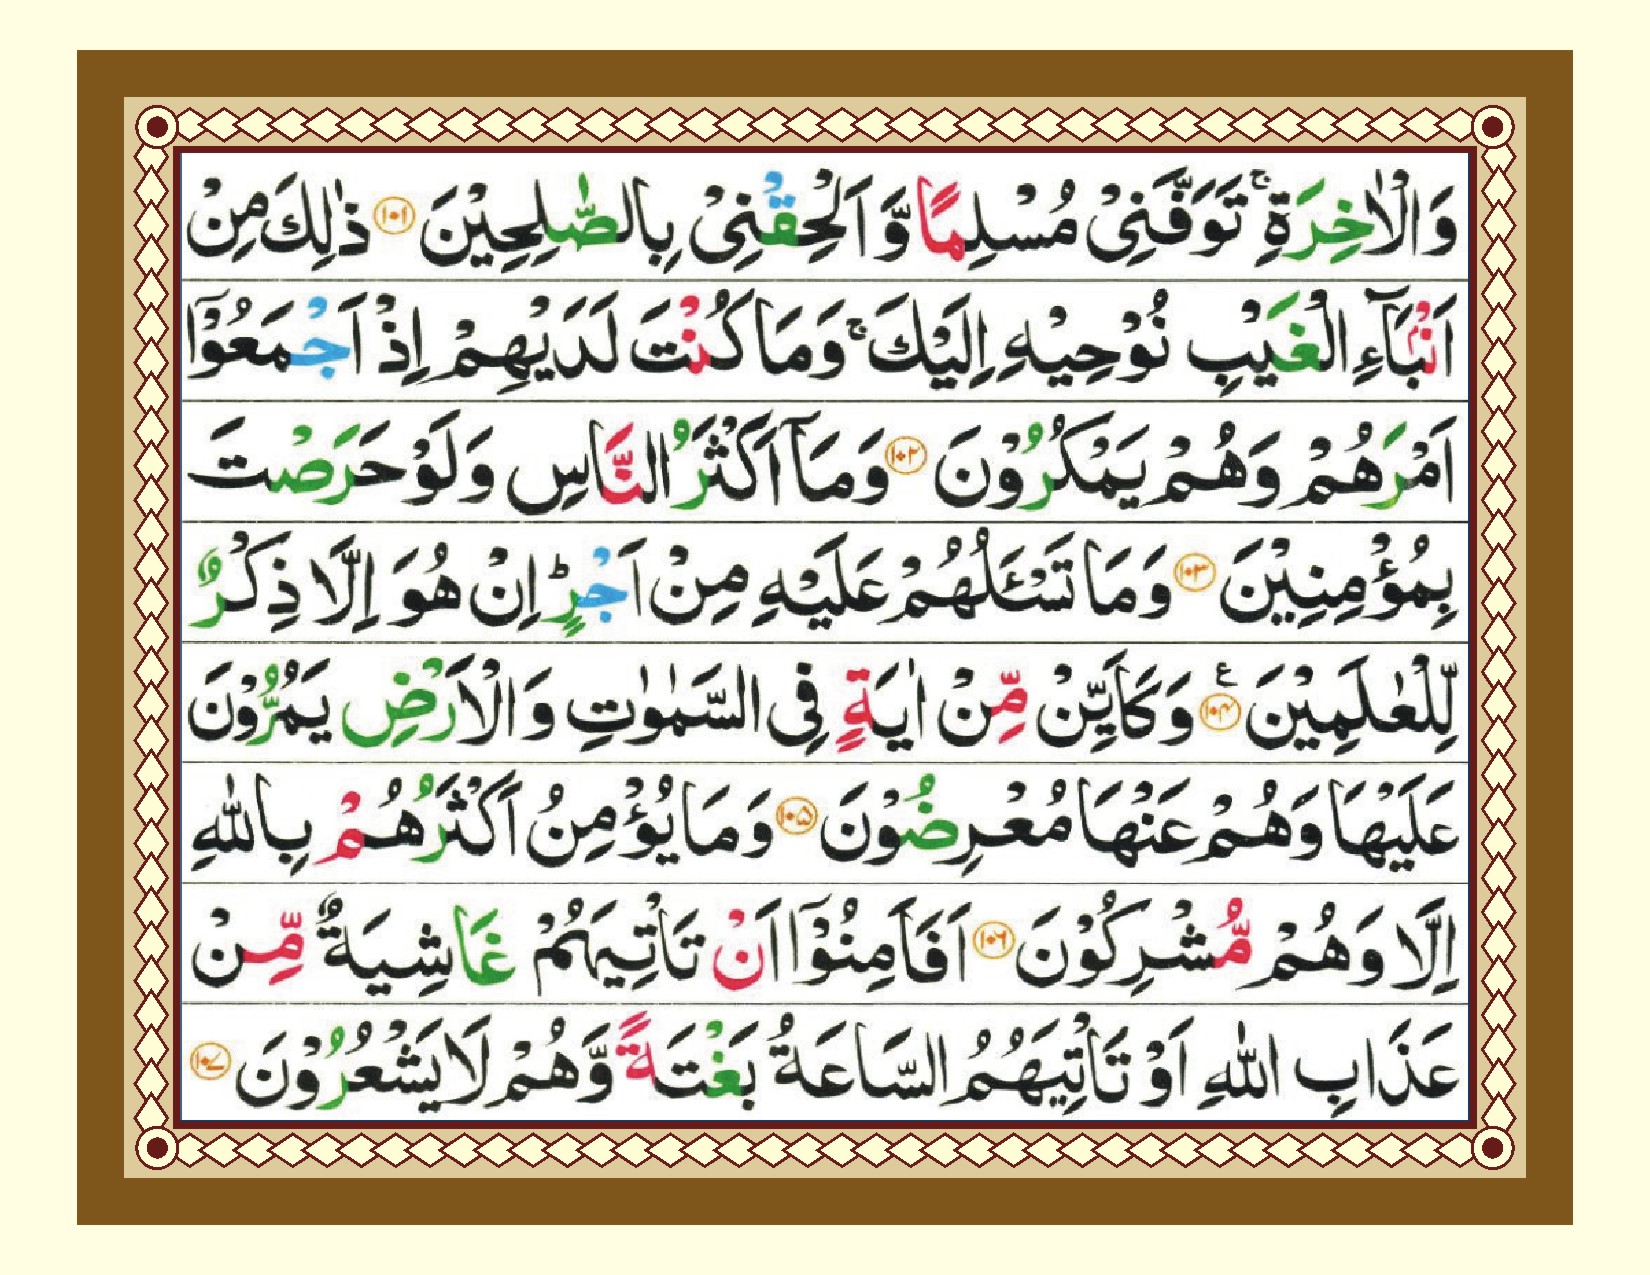 وَالْاٰخِرَةِ ۚ تَوَفَّنِیْ مُسْلِمًا وَّ اَلْحِقْنِیْ بِالصّٰلِحِیْنَ ﴿۱۰۱﴾ ذٰلِكَ مِنْ
اَنْۢبَآءِ الْغَیْبِ نُوْحِیْهِ اِلَیْكَ ۚ وَمَا كُنْتَ لَدَیْهِمْ اِذْ اَجْمَعُوْۤا
اَمْرَهُمْ وَهُمْ یَمْكُرُوْنَ ﴿۱۰۲﴾ وَمَاۤ اَكْثَرُ النَّاسِ وَلَوْ حَرَصْتَ
بِمُؤْمِنِیْنَ ﴿۱۰۳﴾ وَمَا تَسْـَٔلُهُمْ عَلَیْهِ مِنْ اَجْرٍ ؕ اِنْ هُوَ اِلَّا ذِكْرٌ
لِّلْعٰلَمِیْنَ ﴿۱۰۴﴾ ع وَكَاَیِّنْ مِّنْ اٰیَةٍ فِی السَّمٰوٰتِ وَالْاَرْضِ یَمُرُّوْنَ
عَلَیْهَا وَهُمْ عَنْهَا مُعْرِضُوْنَ ﴿۱۰۵﴾ وَمَا یُؤْمِنُ اَكْثَرُهُمْ بِاللّٰهِ
اِلَّا وَهُمْ مُّشْرِكُوْنَ ﴿۱۰۶﴾ اَفَاَمِنُوْۤا اَنْ تَاْتِیَهُمْ غَاشِیَةٌ مِّنْ
عَذَابِ اللّٰهِ اَوْ تَاْتِیَهُمُ السَّاعَةُ بَغْتَةً وَّهُمْ لَا یَشْعُرُوْنَ ﴿۱۰۷﴾